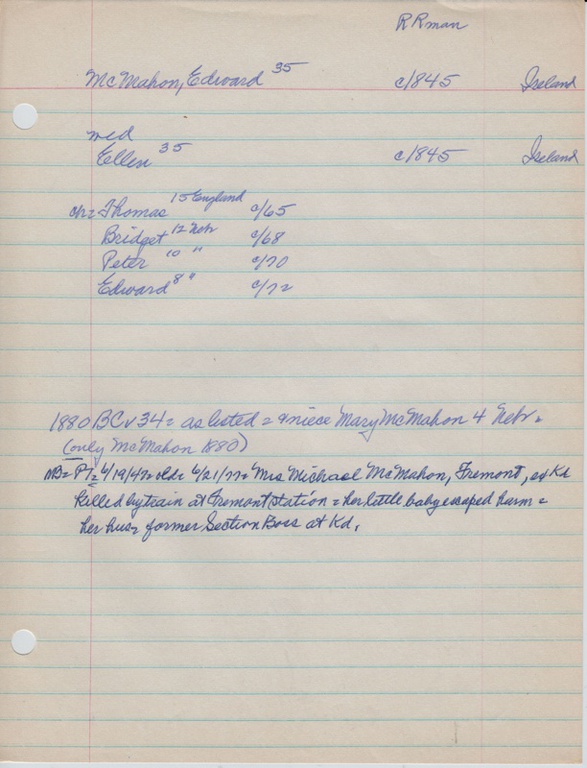 RRman
McMahon, Edward 35 c/1845 Ireland
md
Ellen 35 c/1845 Ireland
ch= Thomas 15 England c/65
Bridget 12 Nebr c/68
Peter 10 " c/70
Edward 8 " c/72
1880 BCv34= as listed = & niece Mary McMahon 4 Nebr=
(only McMahon 1880)
NB= PT= 6/19/47= old= 6/21/77= Mrs Michael McMahon, Fremont, of Kd
killed by train at Fremont station = her little baby escaped harm =
her hus= former Section Boss at Kd.